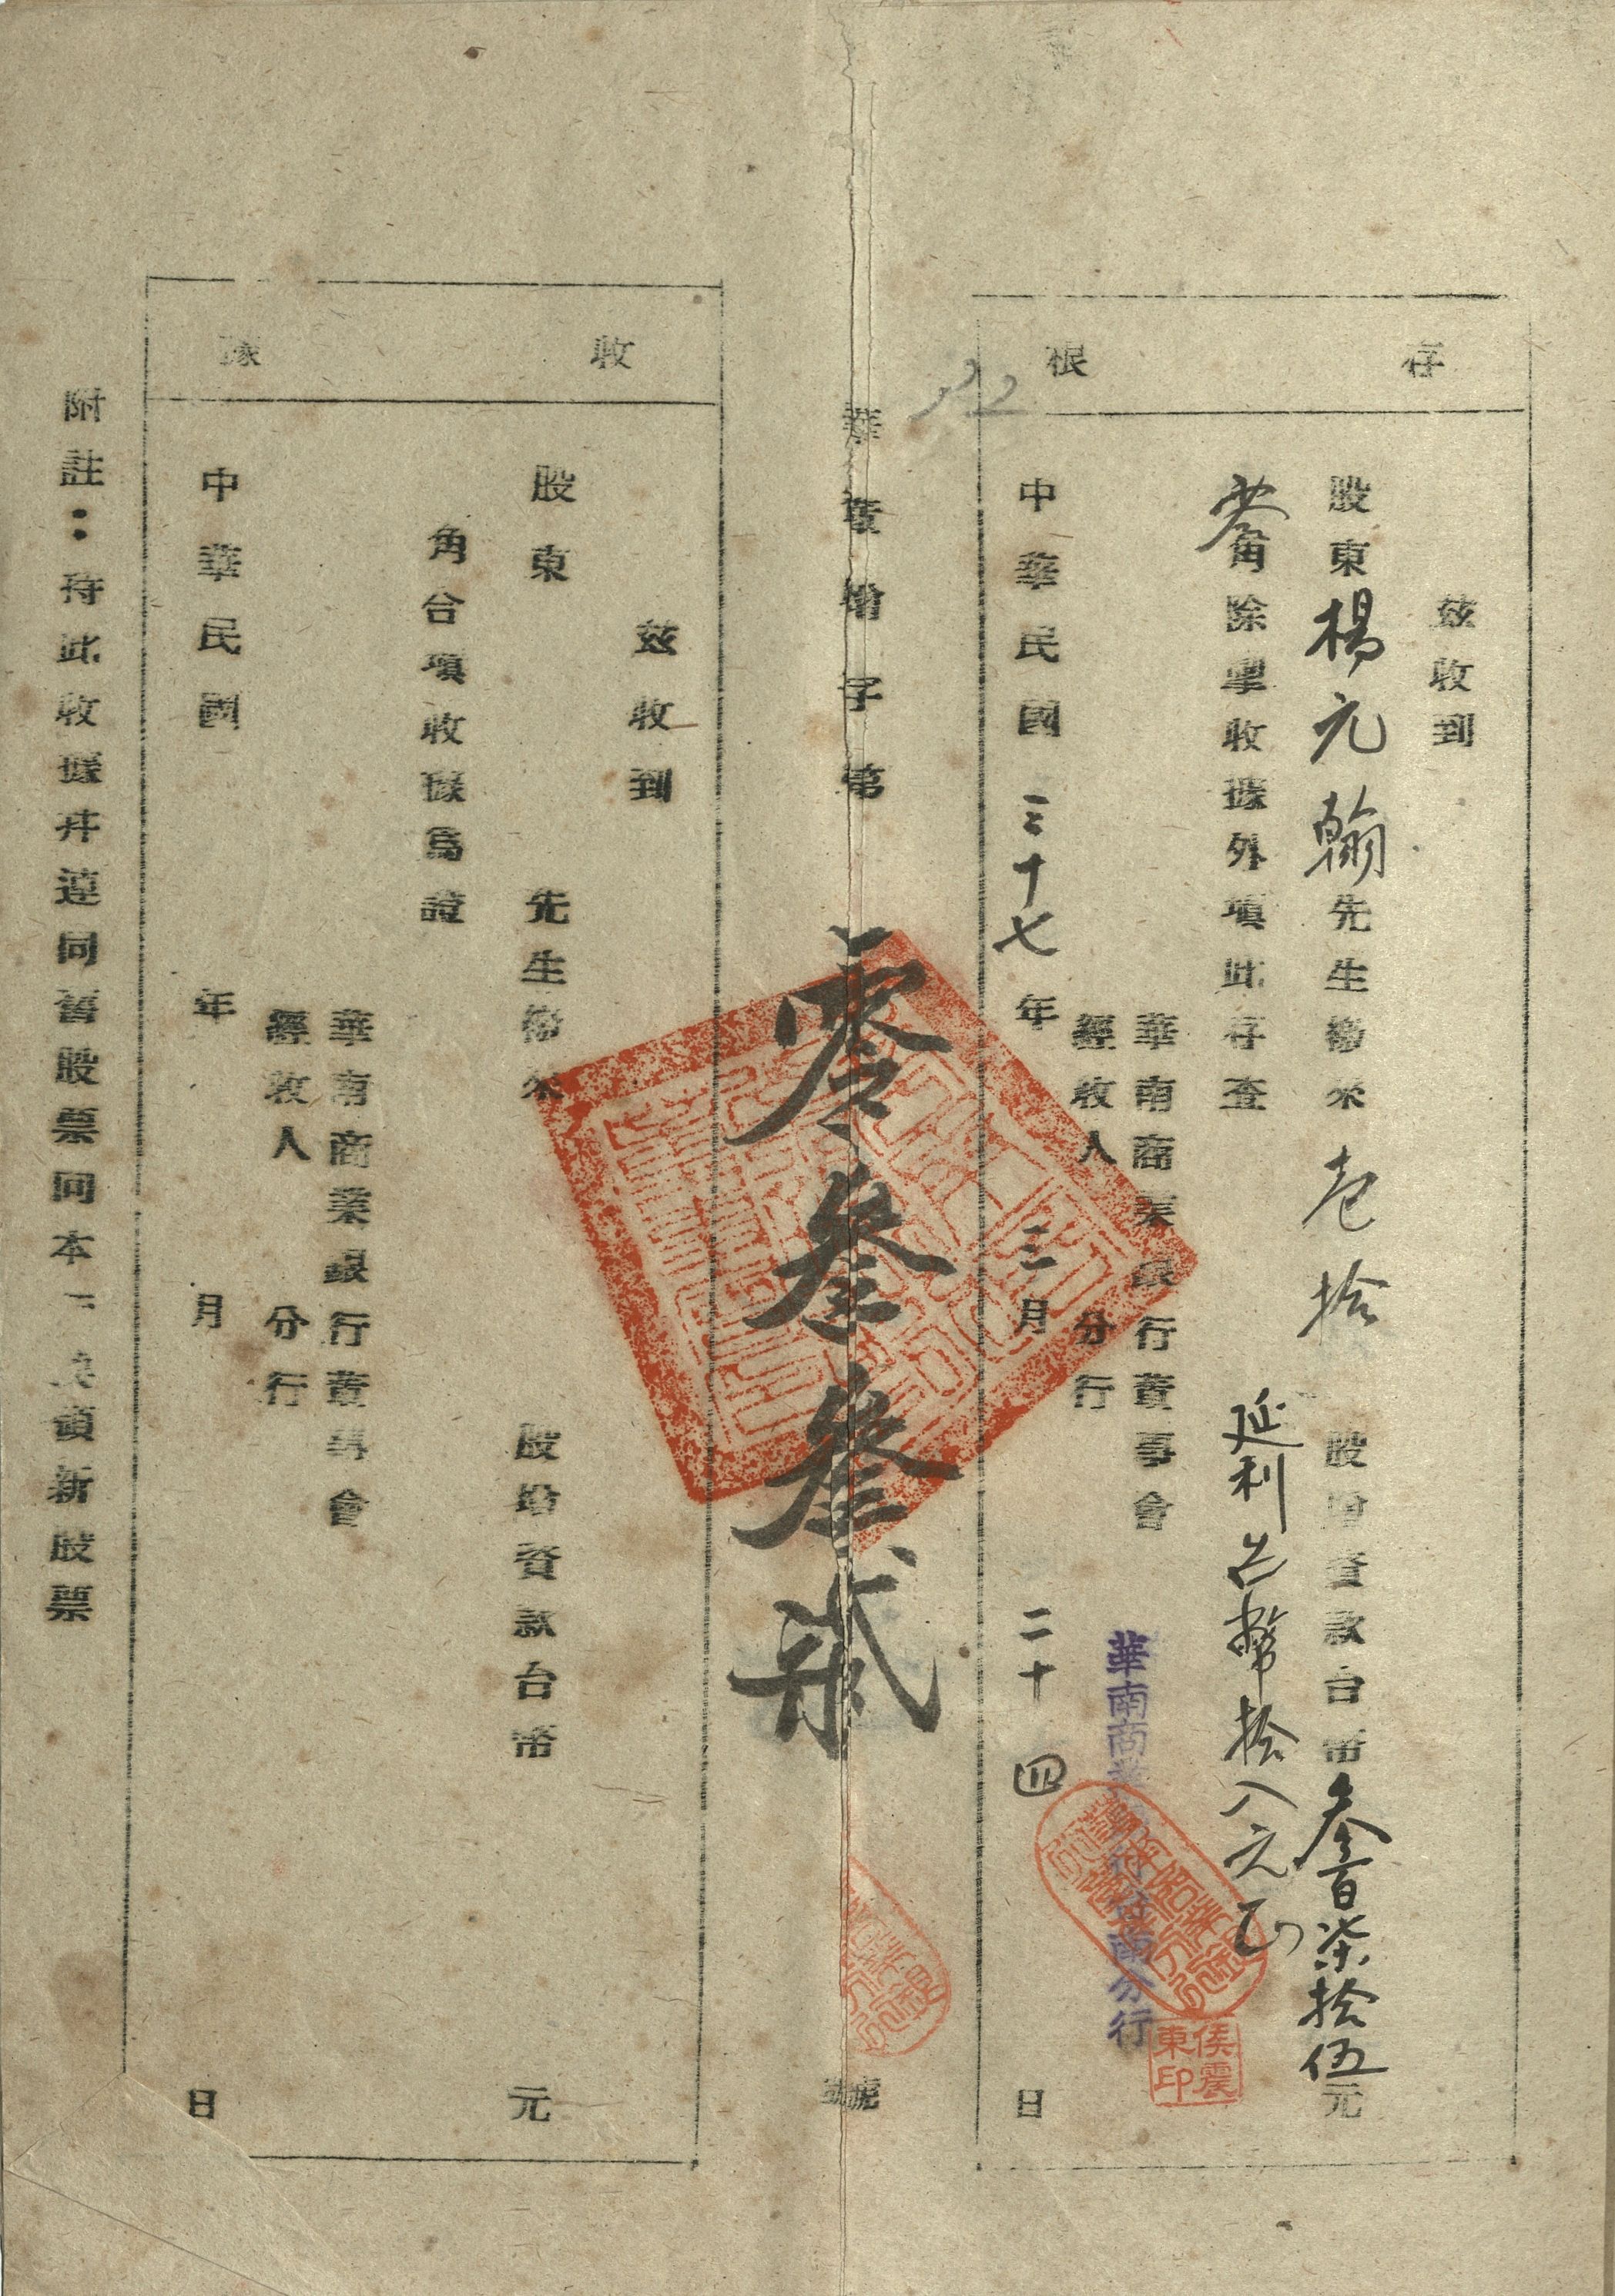 存根
茲收到
股東楊元翰先生繳來壱拾股增資款台幣叁百柒拾伍元
角除掣收據外項此存查
延利台幣拾八元正
華南商業銀行董事會
經收人 分行
華南商業銀行 分行
侯震東印
中華民國三十七年三月二十四日
22
華董增字第零叁叁貳號
收據
茲收到
股東 先生繳來 股增資款台幣 元
角合項收據為證
華南商業銀行董事會
經收人 分行
中華民國 年 月 日
附註：持此收據並連同舊股票向本 換領新股票